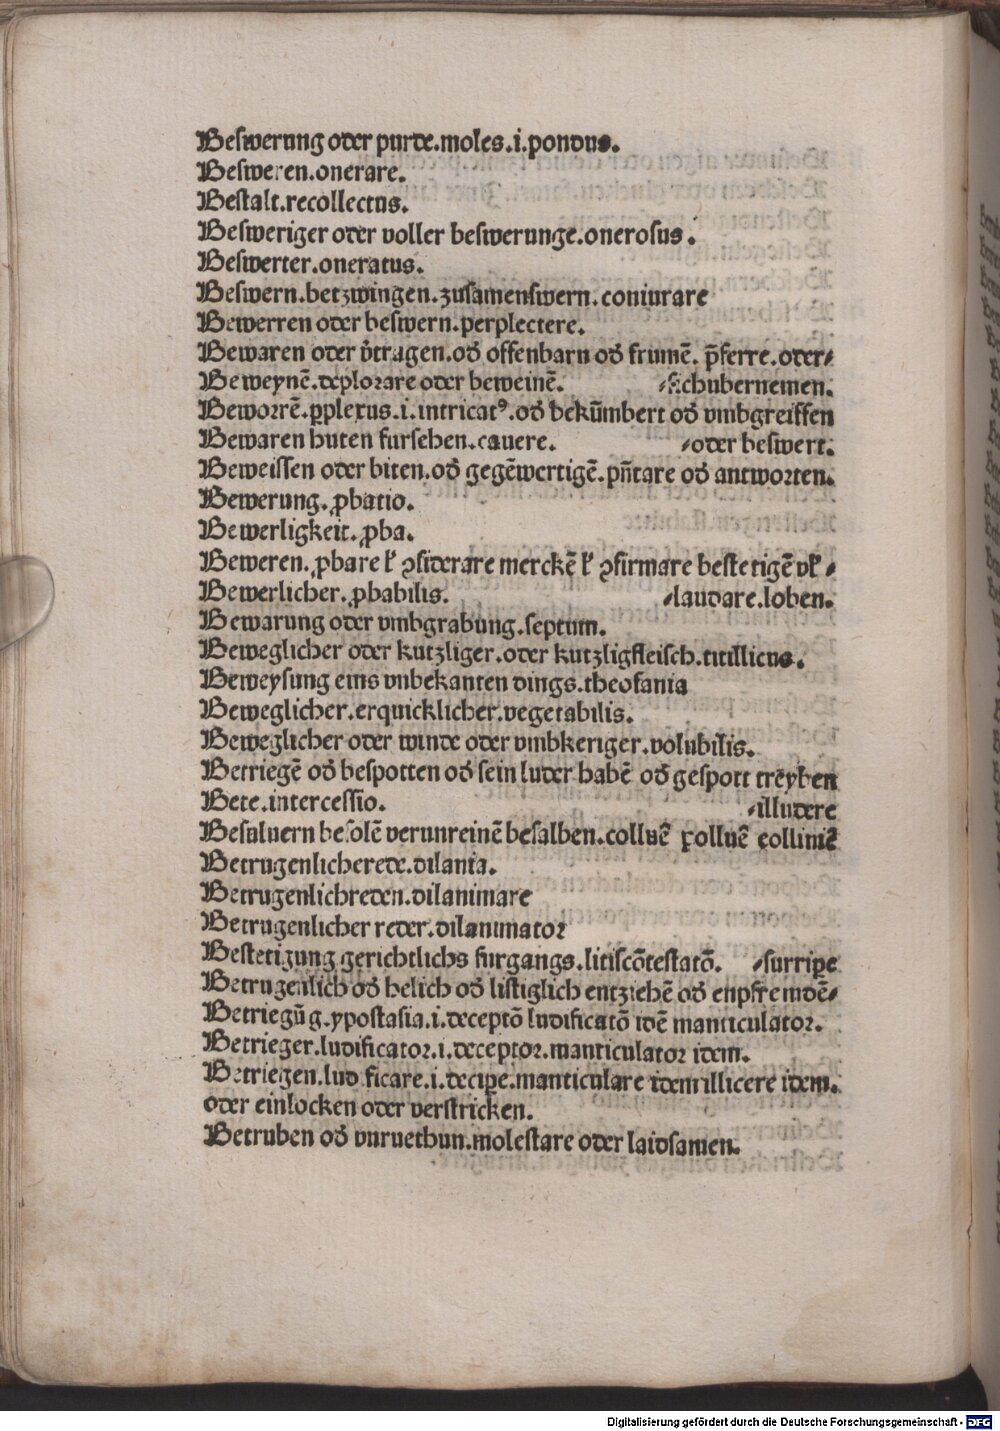 Beſwerung oder purde.moles.i.pondus.
Beſweren.onerare.
Beſtalt.recollectus.
Beſweriger oder voller beſwerunge.oneroſus.
Beſwerter.oneratus.
Beſwern.betzwingen.zuſamenſwern.coniurare
Bewerren oder beſwern.perplectere.
Bewaren oder v̄tragen.od̄ offenbarn od̄ frumē. p̄ferre.oder⸗
Beweynē.deplorare oder beweinē. ⸗ſchubernemen.
Beworrē.ꝑplexus.i.intricatꝰ.od̄ bekūmbert od̄ vmbgreiffen
Bewaren huten furſehen.cauere. ⸗oder beſwert.
Beweiſſen oder biten.od̄ gegēwertigē.pn̄tare od̄ antworten.
Bewerung.ꝓbatio.
Bewerligkeit.ꝓba.
Beweren.ꝓbare ł ꝯſiderare merckē ł ꝯfirmare beſtetigē vł⸗
Bewerlicher.ꝓbabilis. ⸗laudare.loben.
Bewarung oder vmbgrabung.ſeptum.
Beweglicher oder kutzliger.oder kutzligfleiſch.titillicus.
Beweyſung eins vnbekanten dings.theofania
Beweglicher.erquicklicher.vegetabilis.
Beweglicher oder winde oder vmbkeriger.volubilis.
Betriegē od̄ beſpotten od̄ ſein luder habē od̄ geſpott trēyben
Bete.interceſſio. ⸗illudere
Beſuluern beſolē verunreinē beſalben.colluē polluē colliniē
Betrugenlicherede.dilania.
Betrugenlichreden.dilanimare
Betrugenlicher reder.dilanimator
Beſtetigung gerichtlichs furgangs.litiſcōteſtatō. ⸗ſurriꝑe
Betrugenlich od̄ helich od̄ liſtiglich entziehē od̄ enpfremdē⸗
Betriegūg.ypoſtaſia.i.deceptō ludificatō idē manticulator.
Betrieger.ludificator.i.deceptor.manticulator idem.
Betriegen.ludificare.i.deciꝑe.manticulare idem illicere idem.
oder einlocken oder verſtricken.
Betruben od̄ vnruethun.moleſtare oder laidſamen.
Digitalisierung gefördert durch die Deutsche Forschungsgemeinschaft - DFG